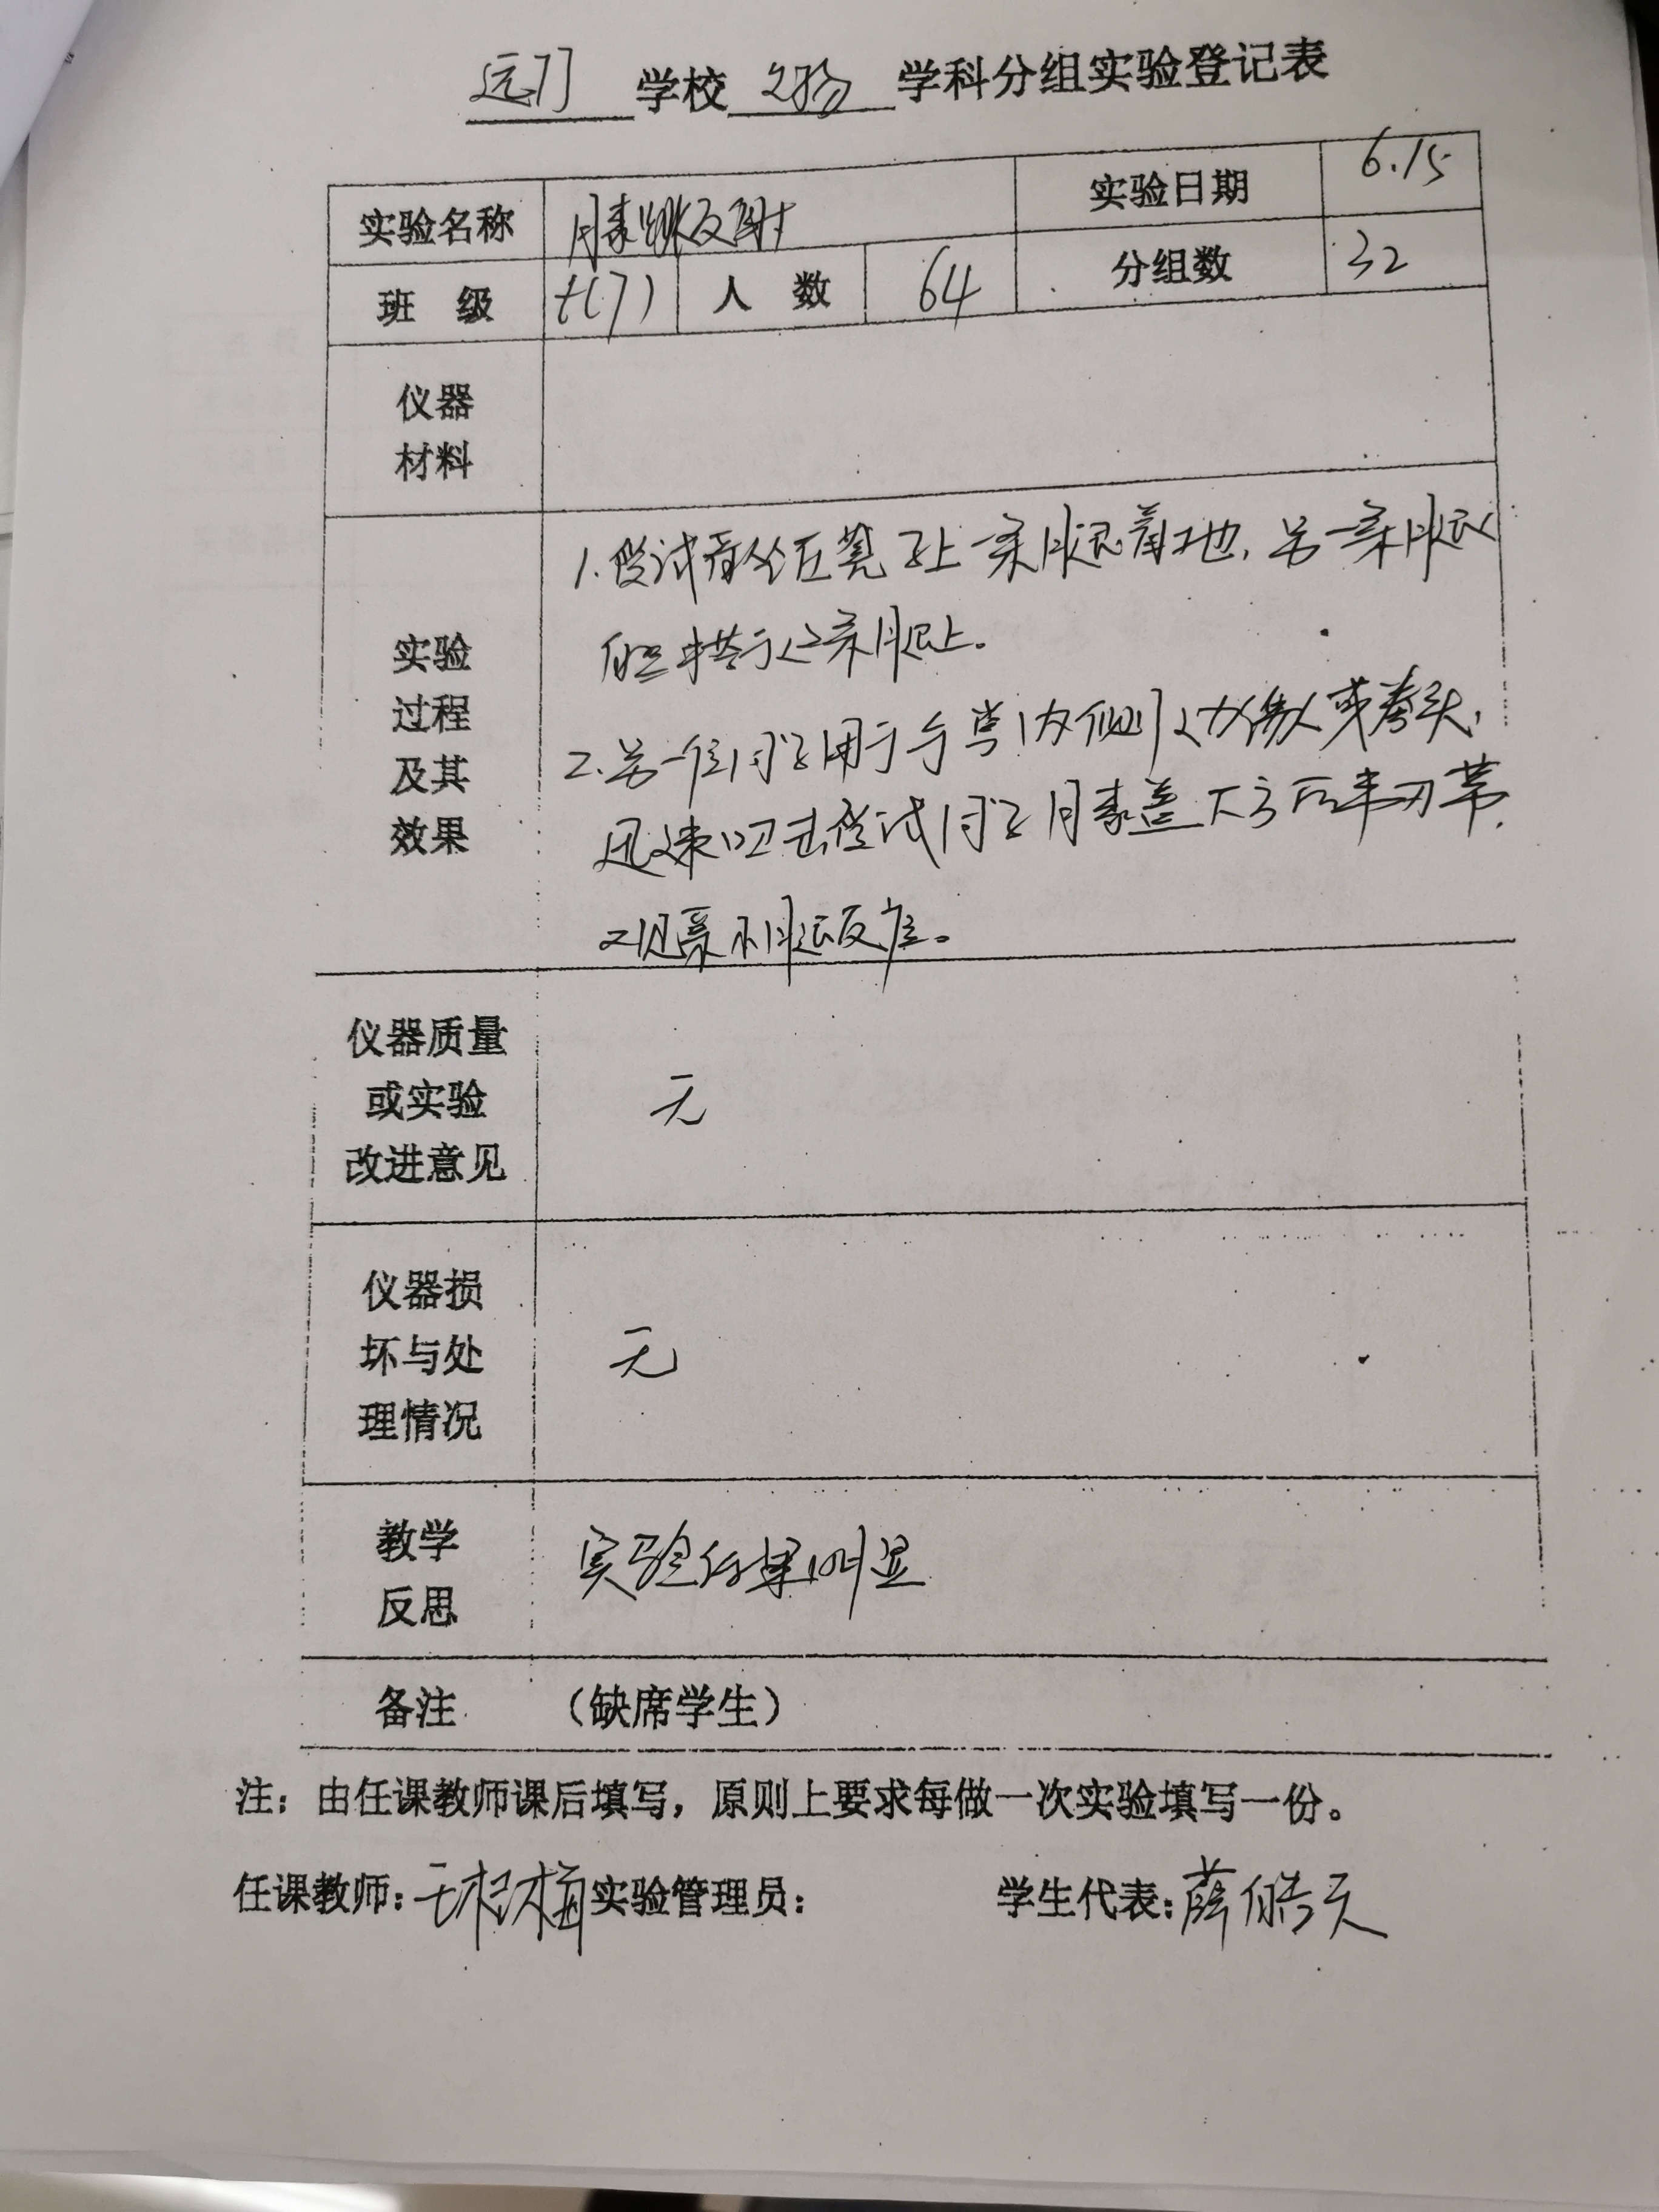 远门 学校 学科分组实验登记表
实验名称 膝跳反射 实验日期 6.15
班 级 七(7) 人 数 64 分组数 32
仪器
材料
实验
过程
及其
效果
1.受试者坐在凳子上一条腿着地,另一条腿
自然搭于这条腿上。
2.另一位同学用手掌内侧边缘或拳头,
迅速叩击受试同学膝盖下方的韧带,
观察小腿反应。
仪器质量
或实验
改进意见
无
仪器损
坏与处
理情况
无
教学
反思
实验结果明显
备注 (缺席学生)
注:由任课教师课后填写,原则上要求每做一次实验填写一份。
任课教师: 梅 实验管理员: 学生代表:薛皓天